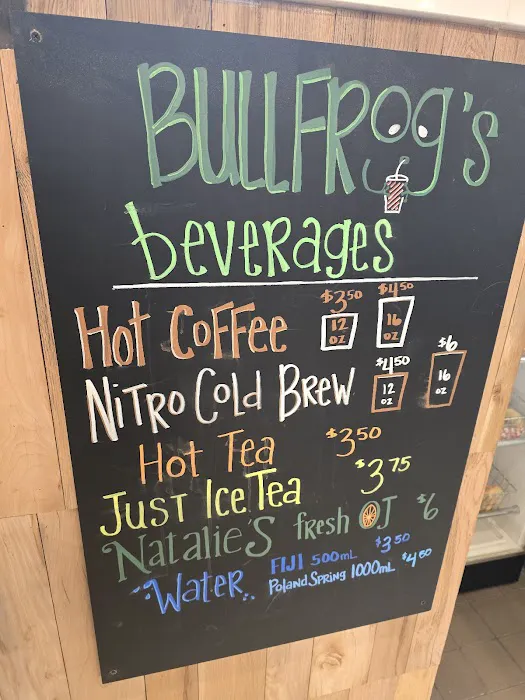 BULLFROg's
beverages
Hot Coffee $3.50 12 oz $4.50 16 oz
Nitro Cold Brew $4.50 12 oz $6 16 oz
Hot Tea $3.50
Just Ice Tea $3.75
Natalie's fresh OJ $6
Water FIJI 500mL $3.50
Poland Spring 1000mL $4.50